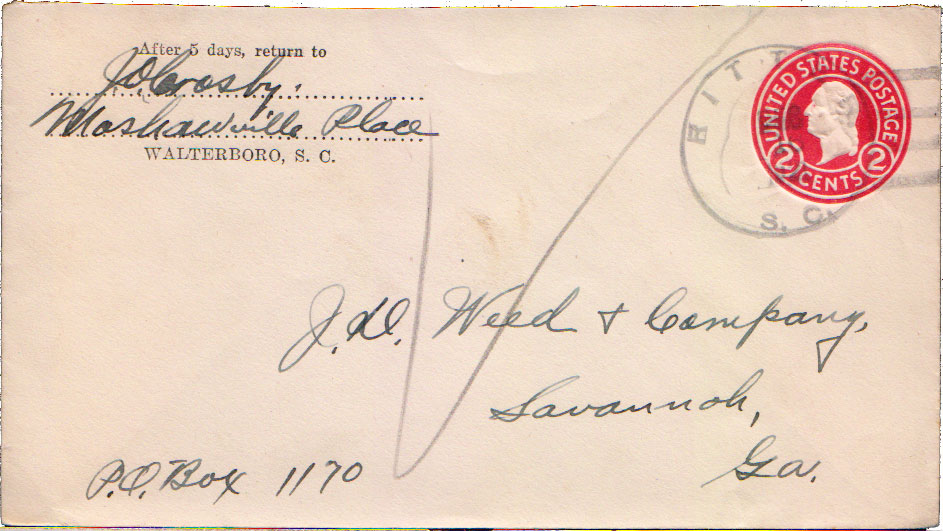 After 5 days, return to
J.D. Crosby.
Moshawville Place
WALTERBORO, S. C.
UNITED STATES POSTAGE
2 CENTS 2
S. C.
J.D. Weed & Company,
Savannah,
Ga.
P.O. Box 1170